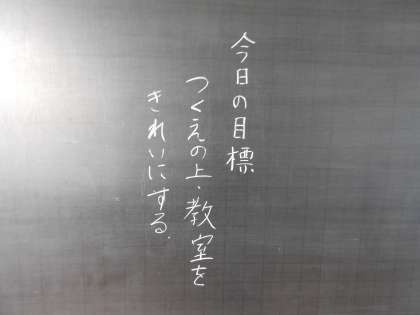 今日の目標
つくえの上・教室を
きれいにする.